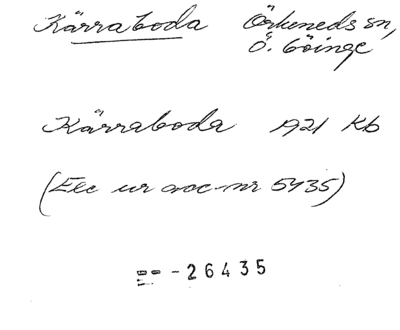 Kärraboda Örkeneds sn,
Ö. Göinge
Kärraboda 1921 Kb
(Exc ur acc-nr 5435)
-26435